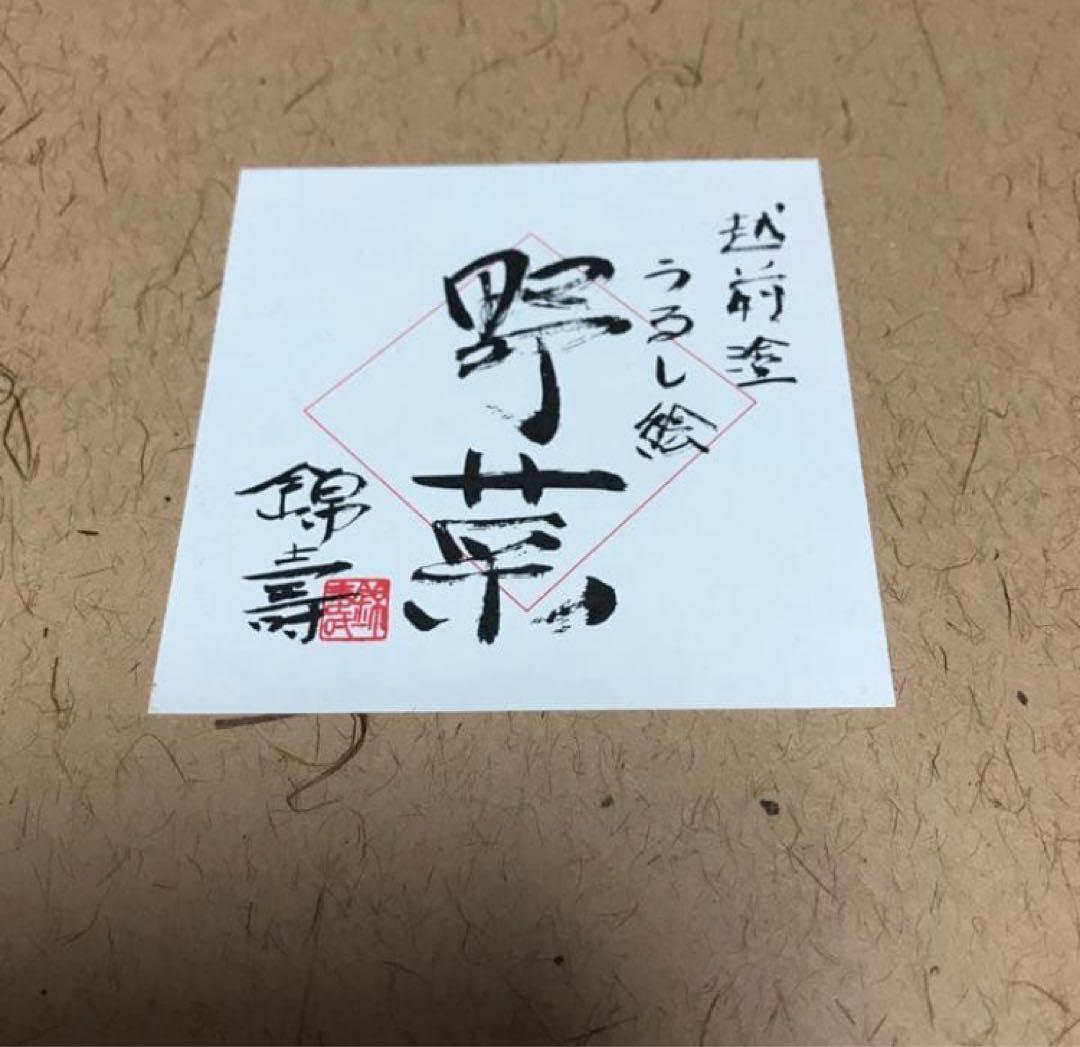 越前塗
うるし絵
野菜
錦壽
錦壽